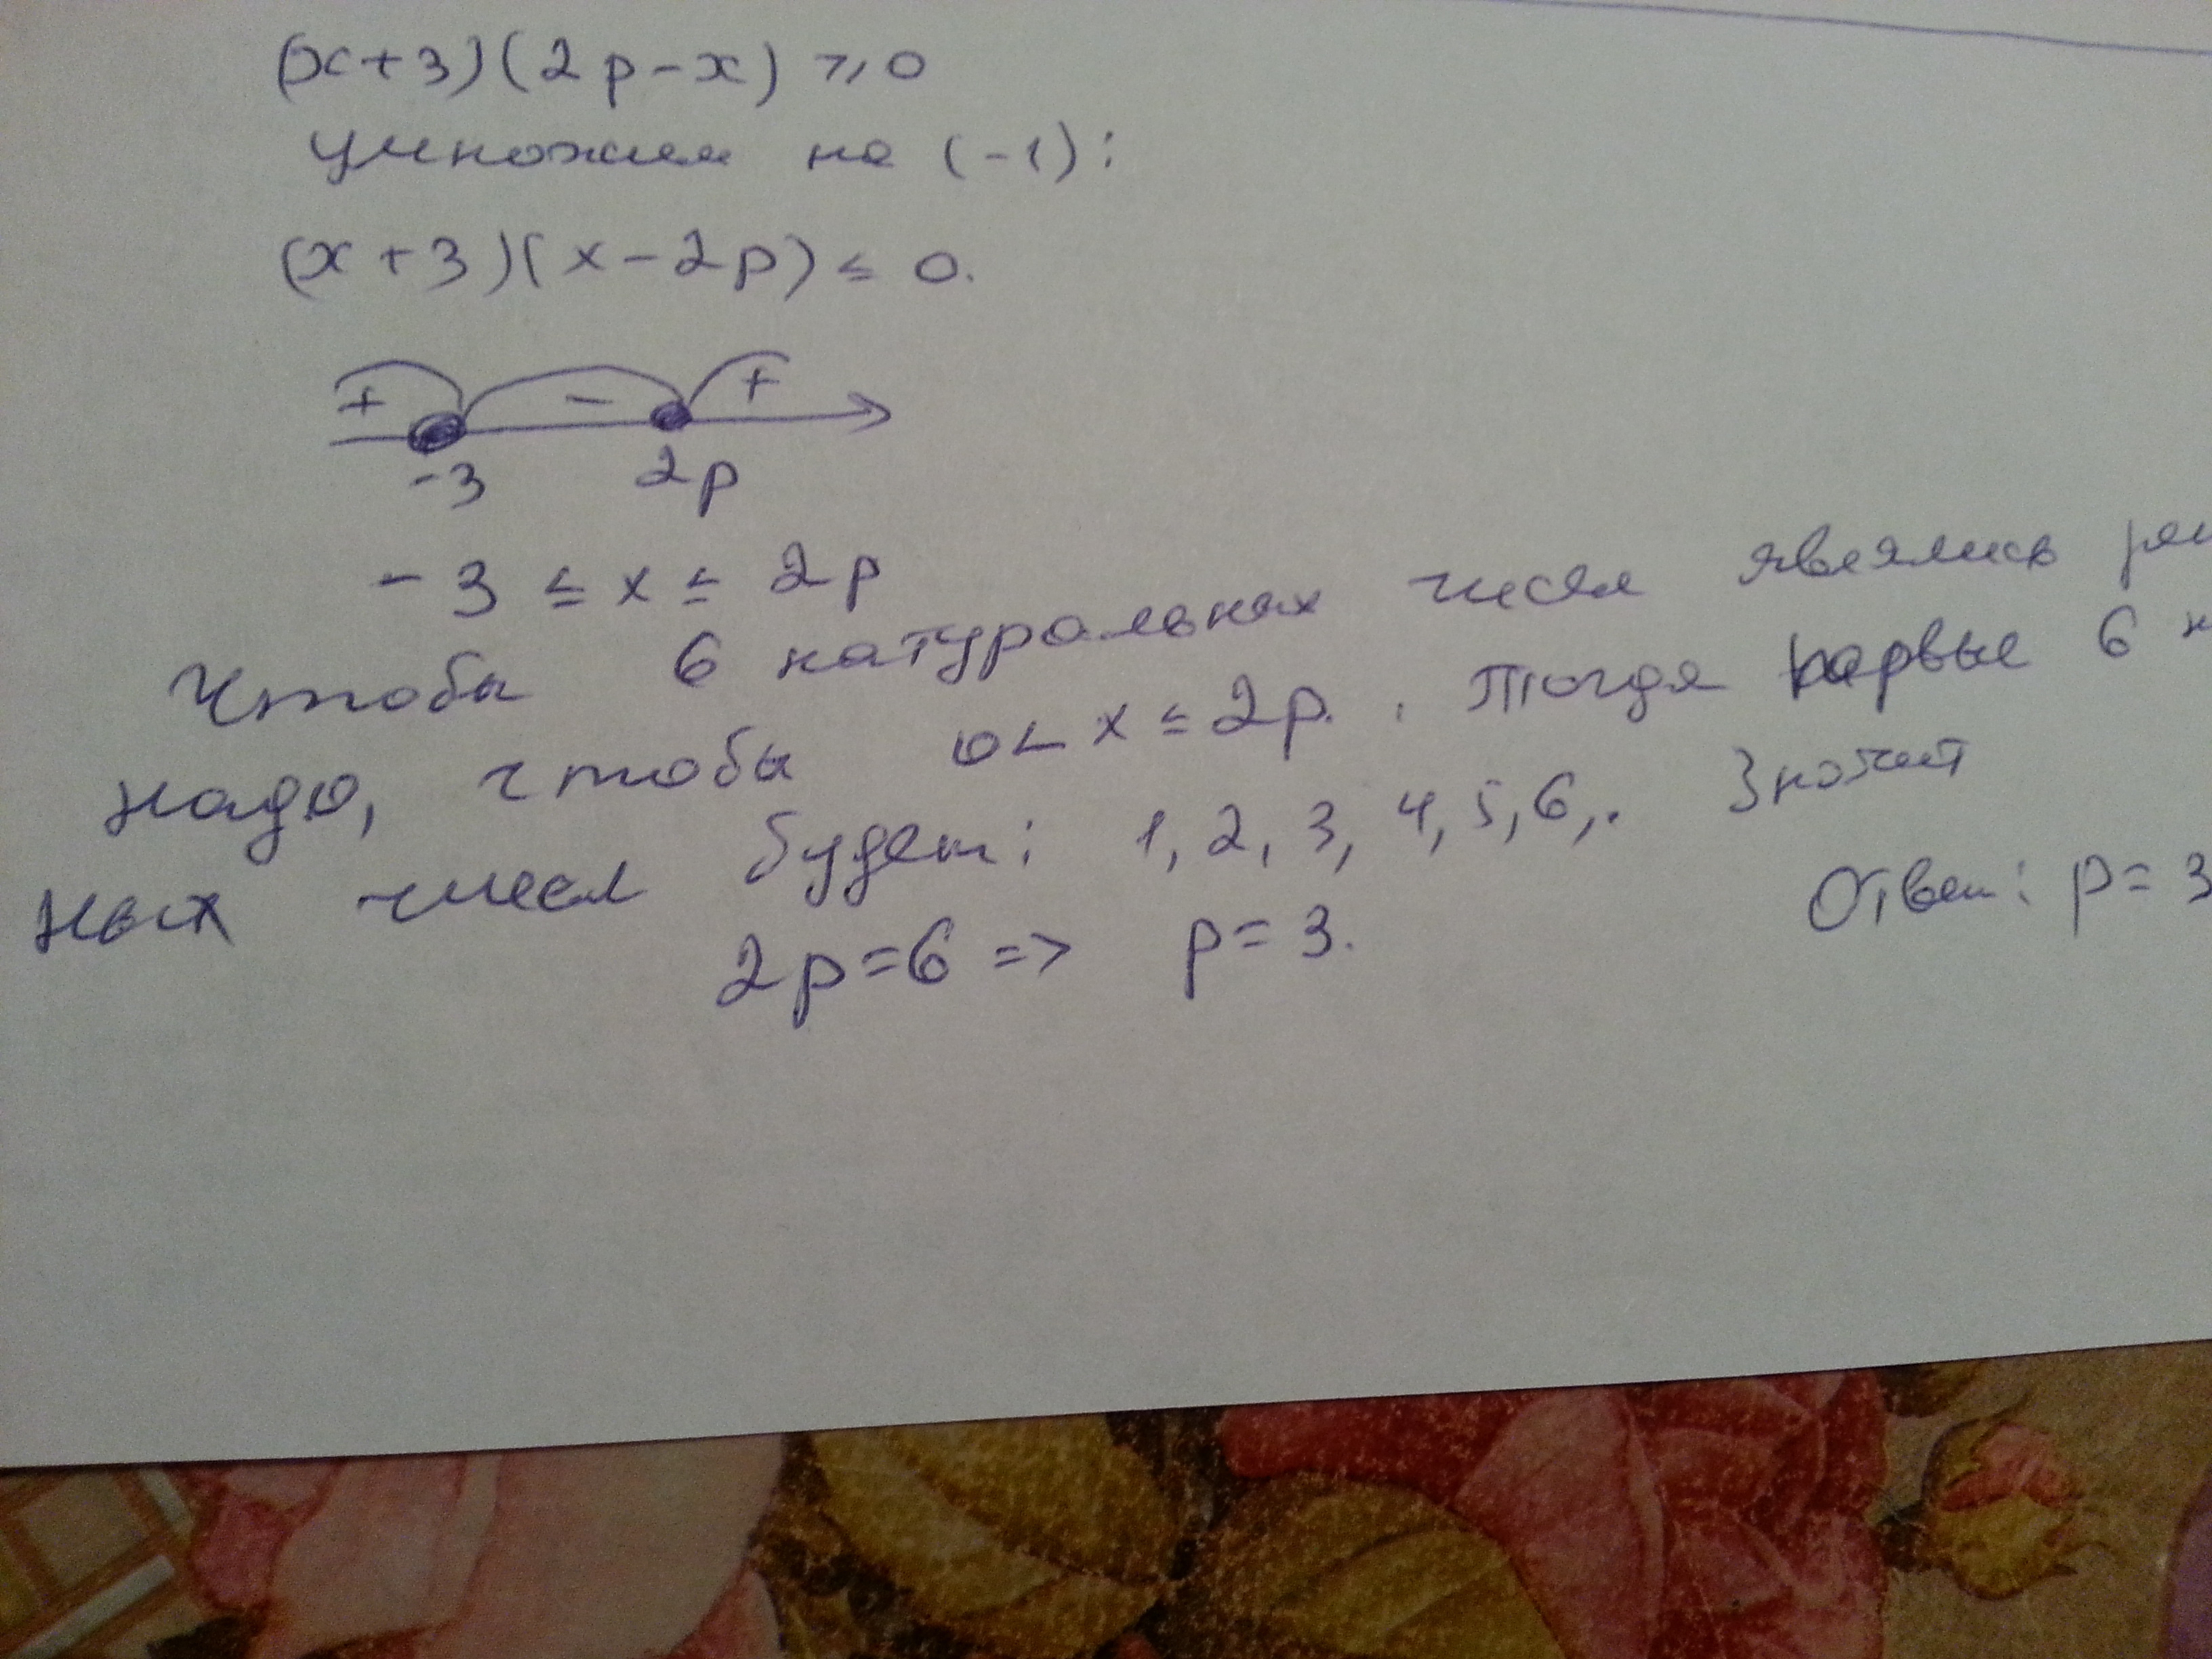 (x+3)(2p-x) ⩾ 0
умножим на (-1):
(x+3)(x-2p) ≤ 0.
+ - +
-3 2p
-3 ≤ x ≤ 2p
Чтобы 6 натуральных чисел являлись
надо, чтобы 0< x ≤ 2p. Тогда первые 6
ных чисел будет: 1, 2, 3, 4, 5, 6,. Значит
2p=6 => p=3. Ответ: p=3